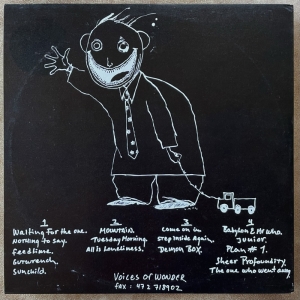 1
Waiting for the one.
Nothing to say.
Feedtime.
Gutwrench.
Sunchild.
2
MOUNTAIN.
Tuesday Morning.
All is Loneliness.
3
Come on in
Step inside Again.
Demon Box.
4
Babylon & Mr who.
Junior
Plan # 1.
Sheer Profoundity
The one who went away
VOICES OF WONDER
FAX: 472 718902